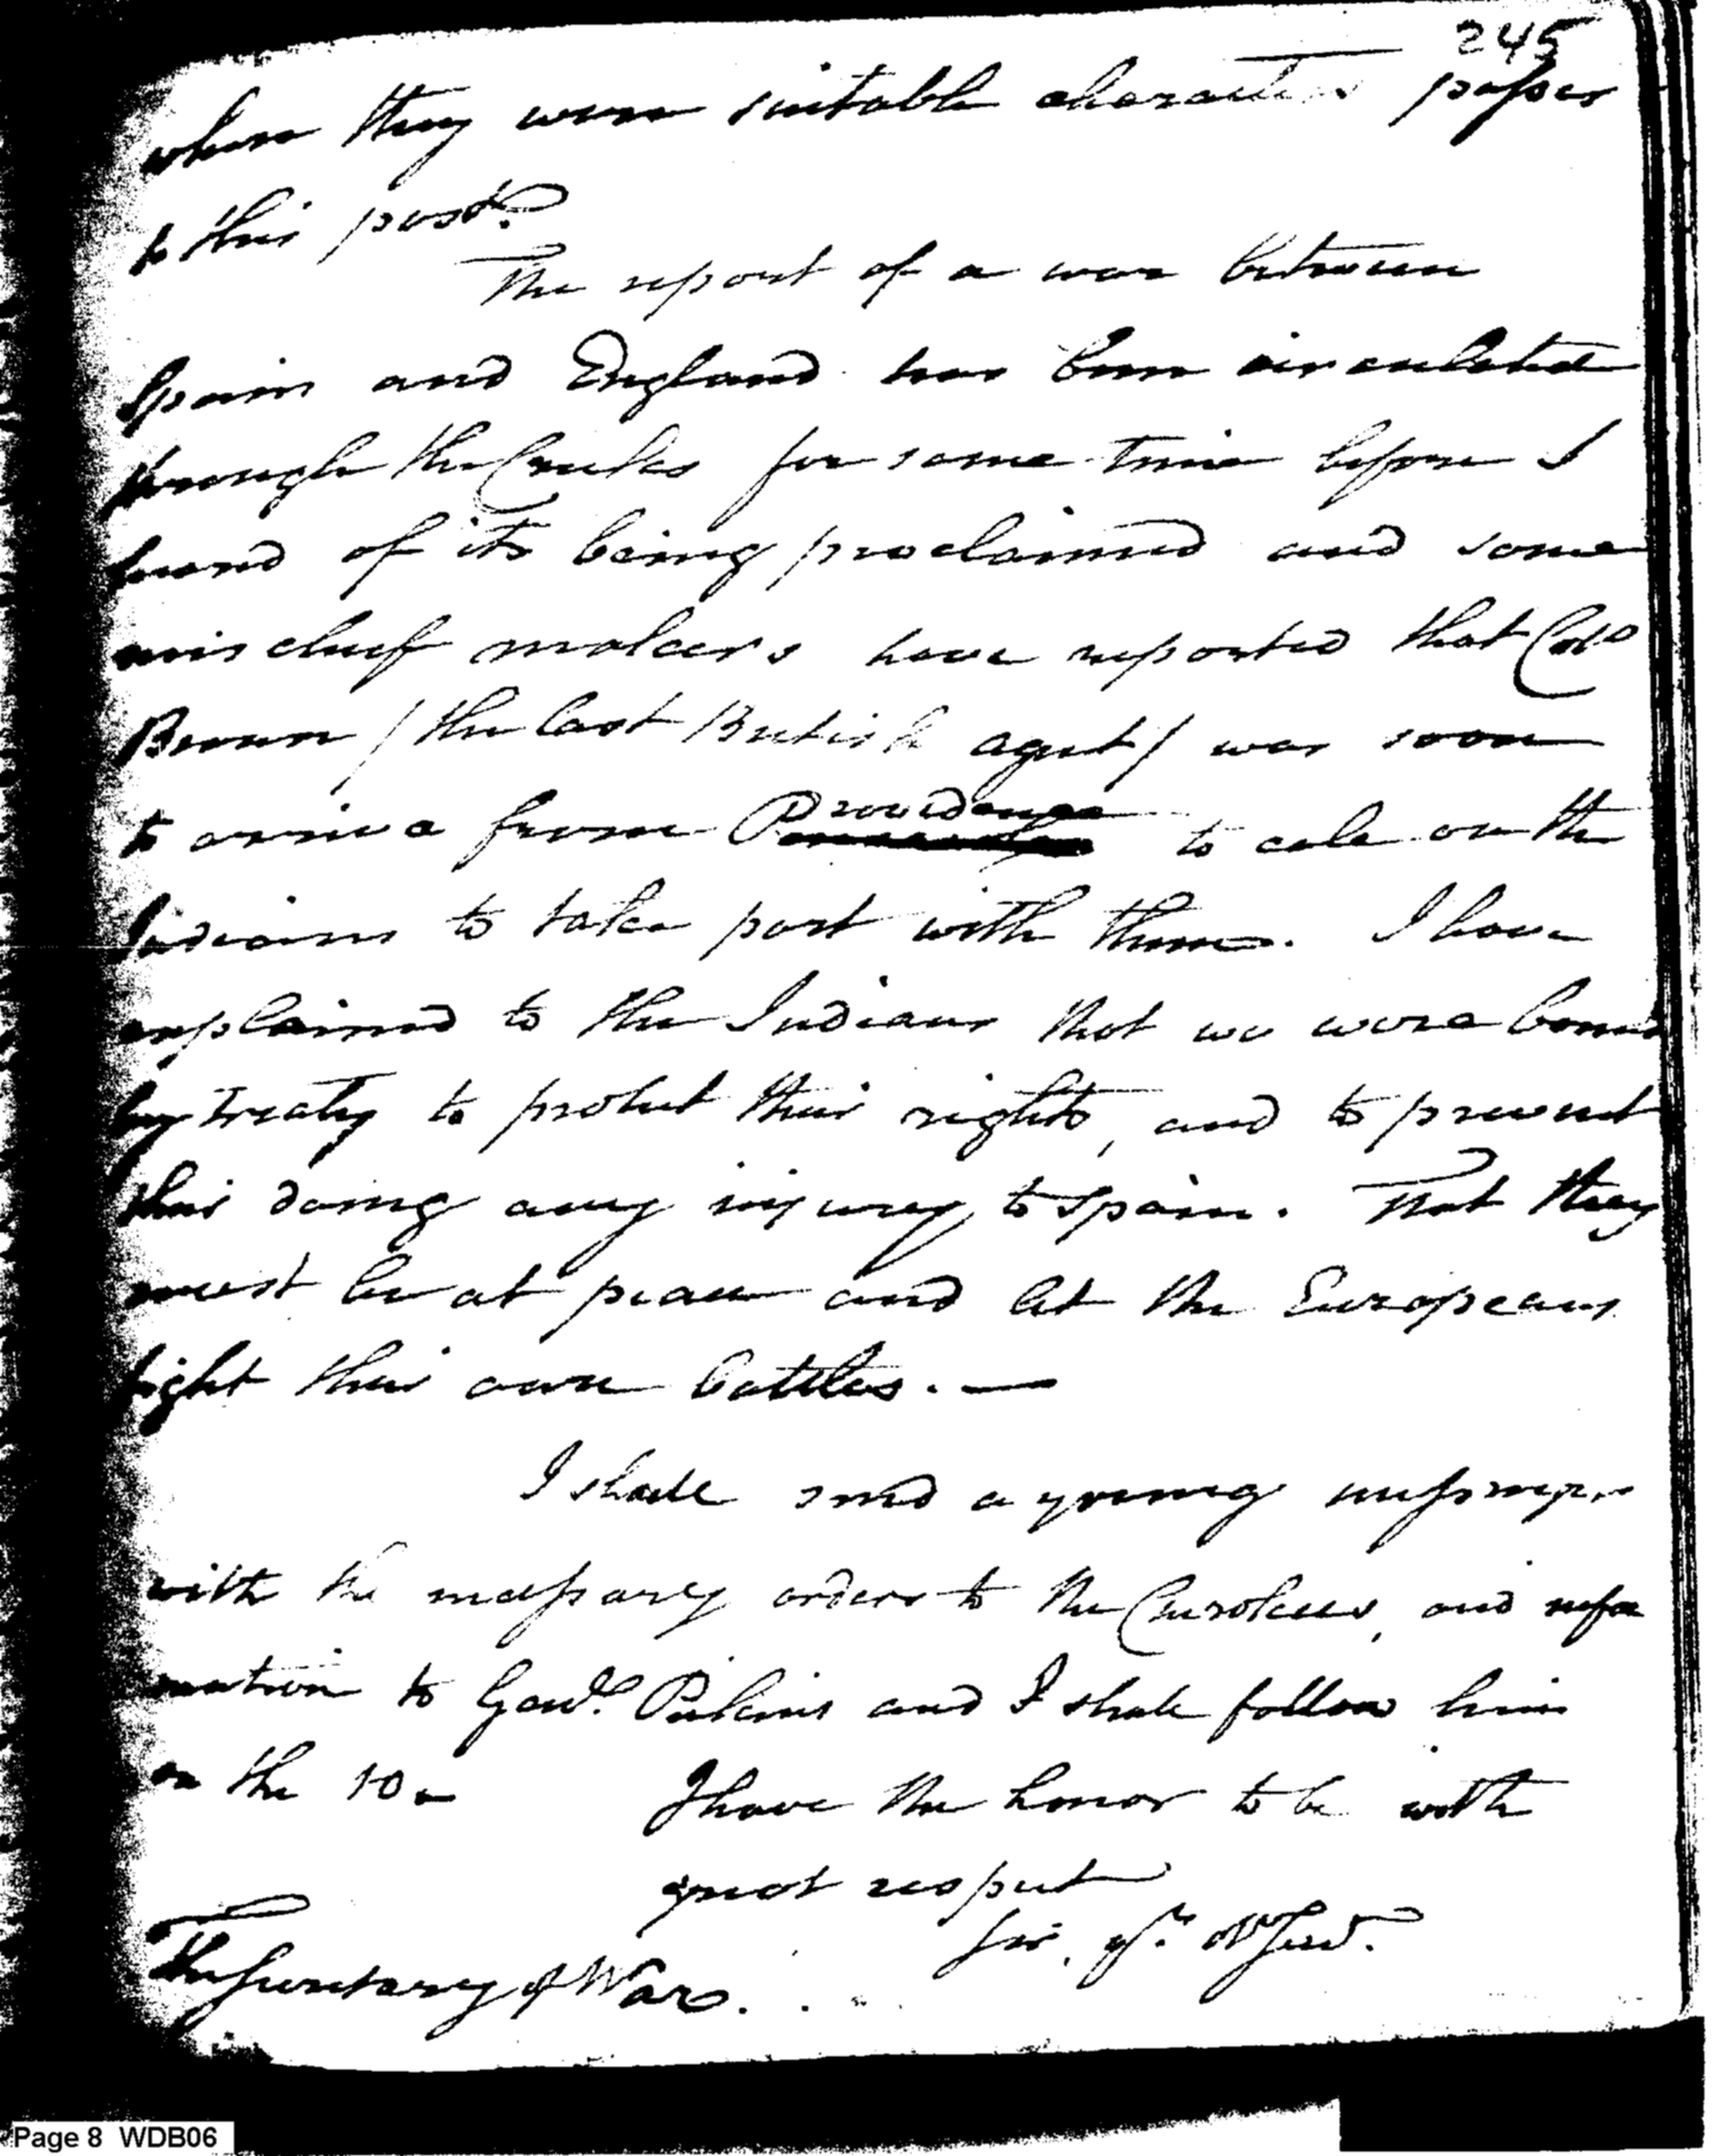 245
when they were suitable characters passes
to this post.
The report of a war between
Spain and England has been circulated
through the Creeks for some time before I
heard of its being proclaimed and some
mischief makers have reported that Colo
Brown / the last British agent / was soon
to arrive from Providence to cale on the
Indians to take part with them. I have
explained to the Indians that we were bound
by treaty to protect their rights, and to prevent
their doing any injury to Spain. That they
must be at peace and let the Europeans
fight their own battles. —
I shall send a young messenger
with the necessary orders to the Cherokees, and infor
mation to Genl. Pickins and I shall follow him
on the 10.
I have the honor to be with
great respect
Sir, yr. Obt servt.
The Secretary of War.
Page 8 WDB06